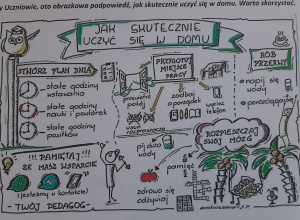 y Uczniowie, oto obrazkowa podpowiedź, jak skutecznie uczyć się w domu. Warto skorzystać.
JAK SKUTECZNIE
UCZYĆ SIĘ W DOMU
STWÓRZ PLAN DNIA
stałe godziny
wstawania
stałe godziny
nauki i powtórek
stałe godziny
posiłków
PRZYGOTUJ
MIEJSCE
PRACY
przewietrz
pokój
zadbaj
o porządek
wycisz
telefon
RÓB
PRZERWY
napij się
wody
porozciągaj się
!!! PAMIĘTAJ !!!
ŻE MASZ WSPARCIE
(jesteśmy w kontakcie)
- TWÓJ PEDAGOG -
pij dużo
wody
pamięć
zdrowo się
odżywiaj
ROZPIESZCZAJ
SWÓJ MÓZG